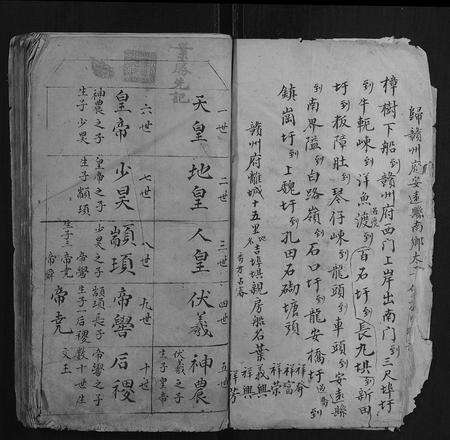 歸贛州府安遠縣南鄉太
樟樹下船到贛州府西門上岸出南門到三尺埠圩
到牛軛崠到洋魚渡過渡到百石圩到長九埧到新田
圩到板障肚到琴仔崠到龍頭到車頭到安遠縣
到南界隘到白路嶺到石口圩到龍安橋圩過到
鎮崗圩到上魏圩到孔田石砌塘頭
贛州府離城十五里地名吉埠埧親房船名葉義興
祥富
祥榮
祥興
祥芳
葉勝先記
一世 二世 三世 四世 五世
天皇 地皇 人皇 伏羲 神農
伏羲之子
生子皇帝
六世 七世 八世 九世 十世
皇帝 少昊 顓頊 帝嚳 后稷
神農之子
生子少昊
皇帝之子
生子顓頊
少昊之子
帝嚳
帝堯
帝舜
顓頊長子
生子一后稷
帝堯
帝嚳之子
數十世生
文王